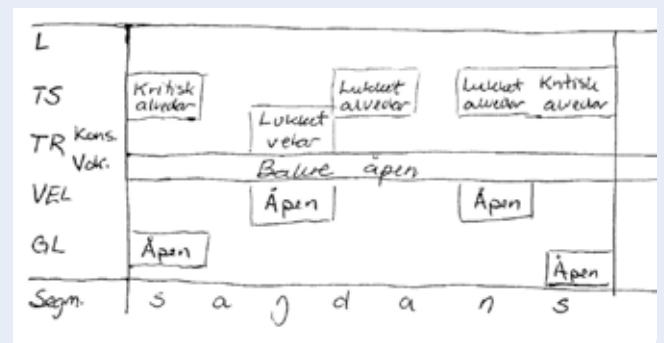 L
TS Kritisk alveolar Lukket alveolar Lukket alveolar Kritisk alveolar
TR Kons. Lukket velar
Vok. Bakre åpen
VEL Åpen Åpen
GL Åpen Åpen
Segm. s a ŋ d a n s